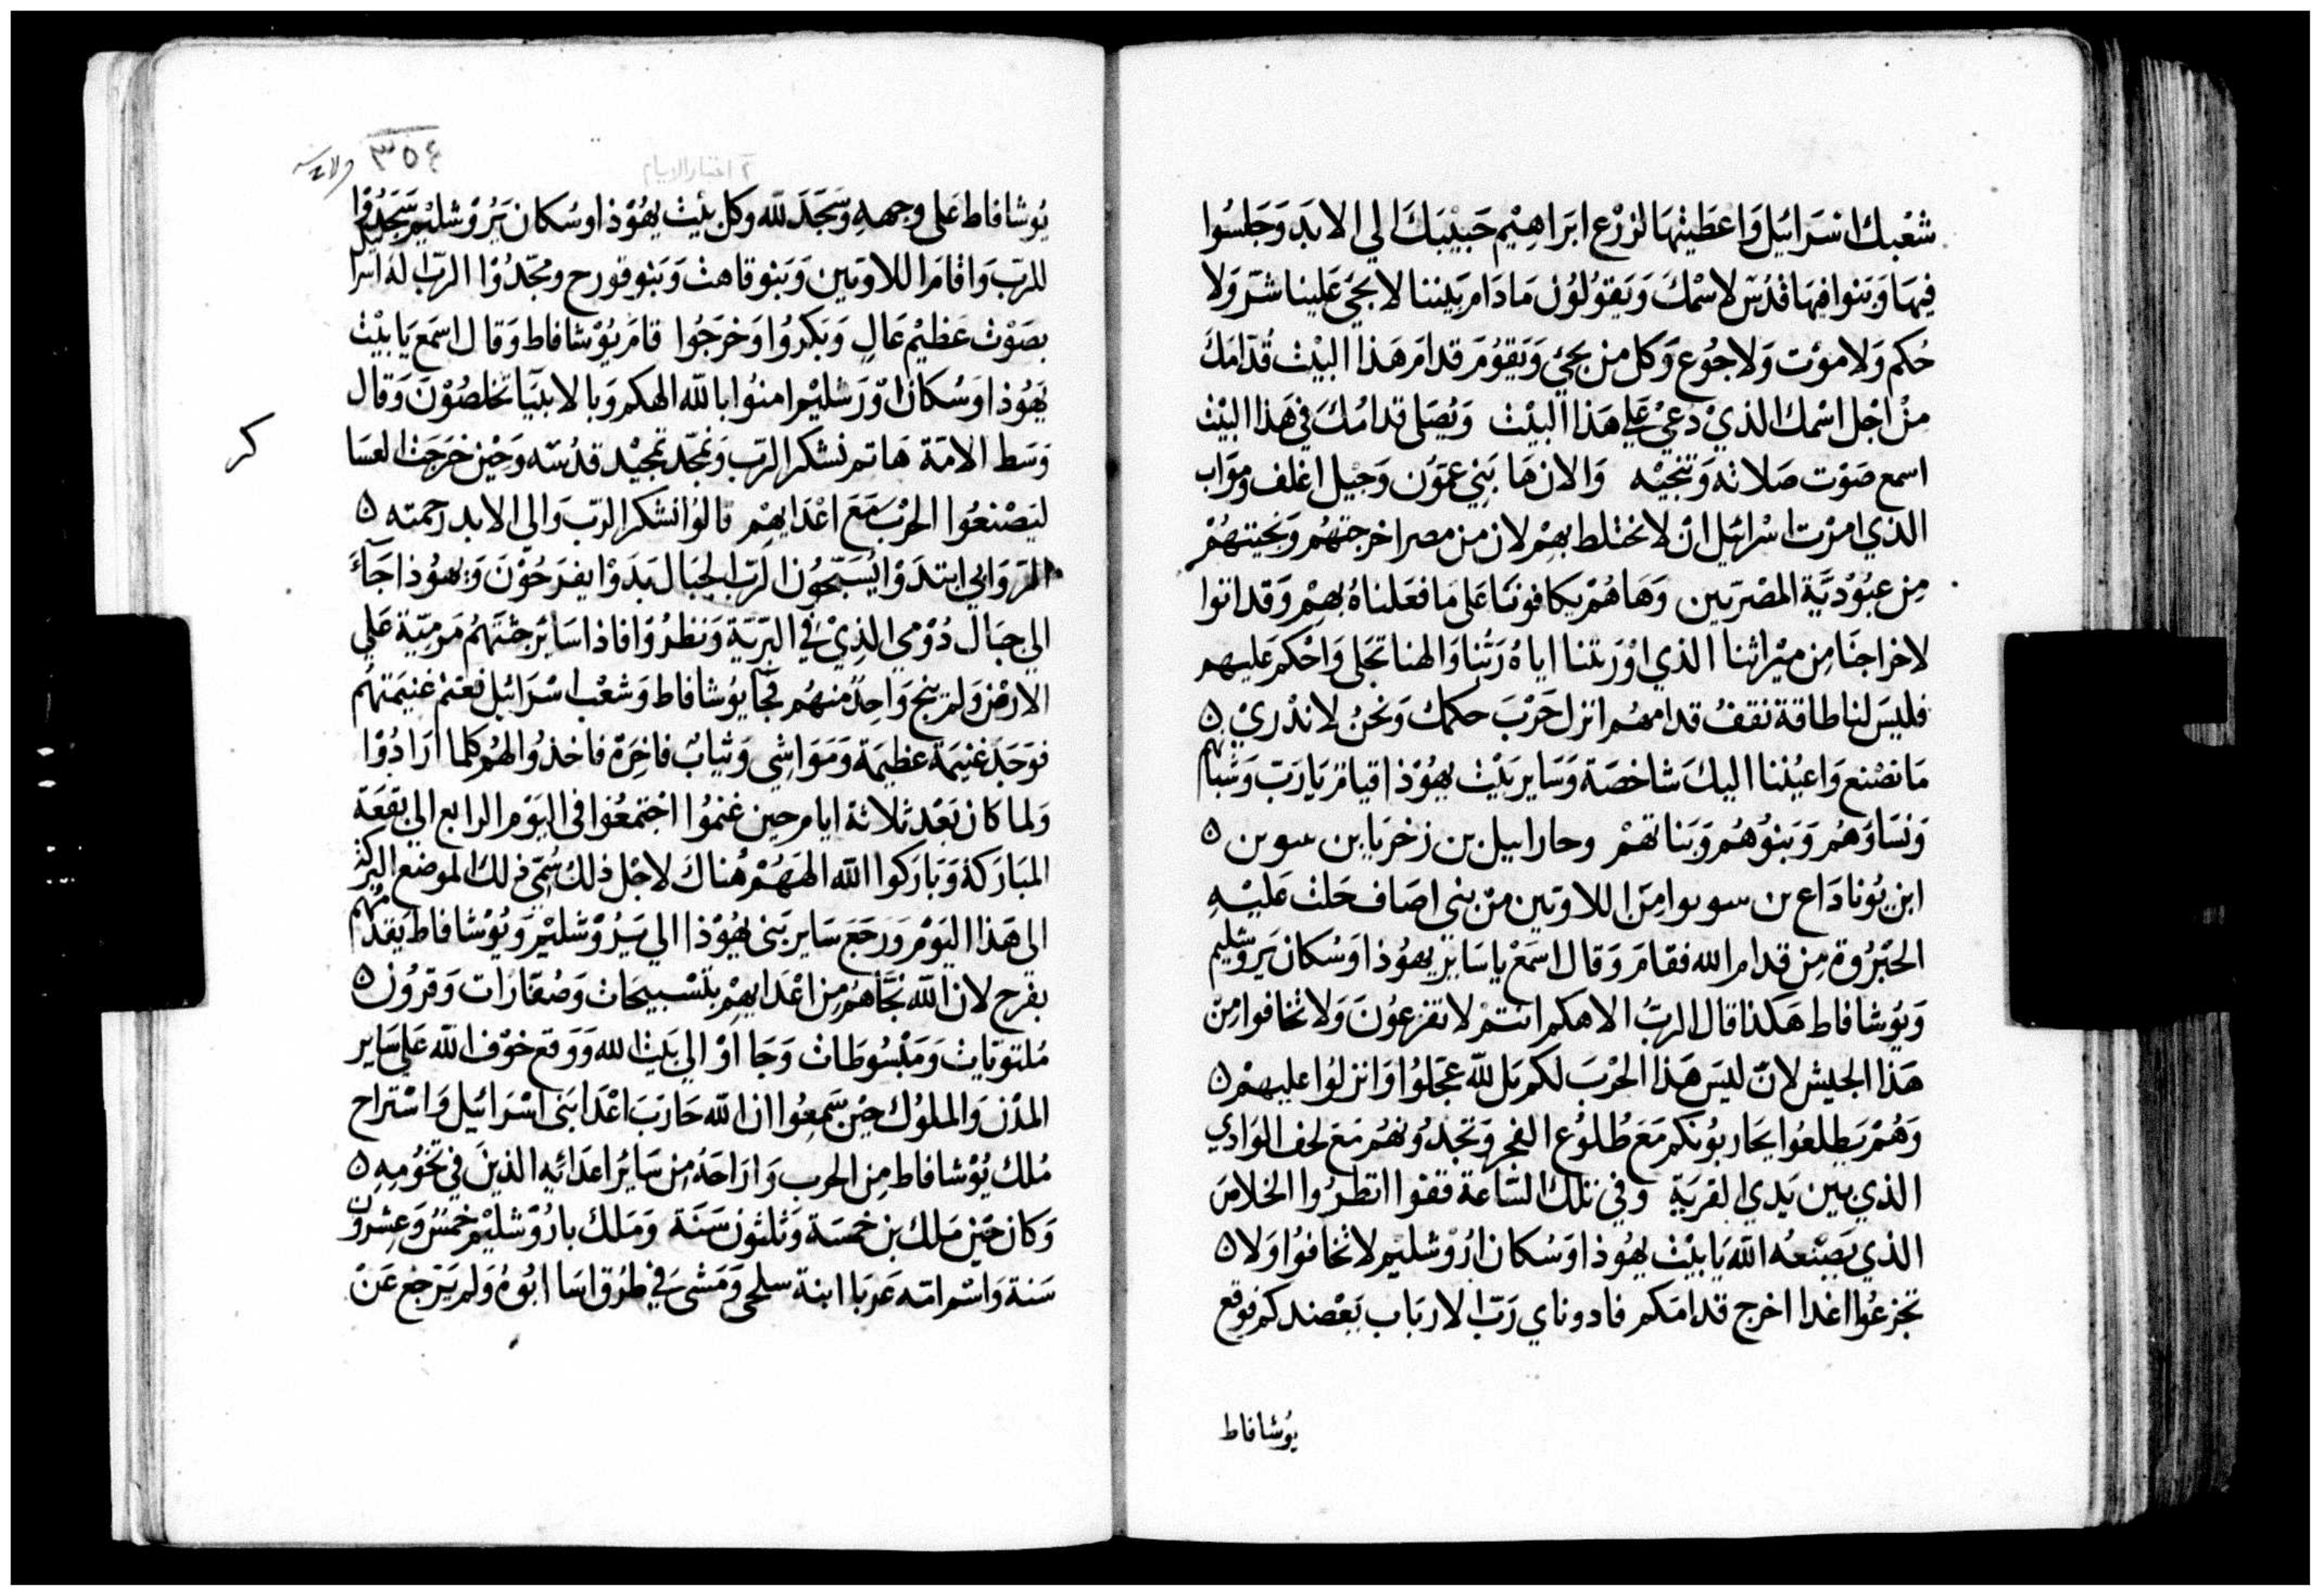 شعبك اسرائيل وَاعطيتهَا لزرْع ابرَاهِيْم حَبيْبَكَ الي الابدَ وَجَلسُوا
فيهَا وَبَنوا فيهَا قدُسَ لاسْمْكَ وَيَقوُلوُن مَا دَامَ بَيننا لا يجَي عَلينا شرّ وَلا
حُكم وَلا موْت وَلا جُوع وَكل من يجيْ وَيَقوُمَ قدامَ هَذا البيْت قُدّامَكَ
مِنْ اجْل اسْمك الذيْ دُعيْ عَلي هَذا البيْت وَيُصَلى قدامُكَ في هَذا البيْث
اسمع صَوْت صَلاته وَتنجيْه وَالان هَا بَنِي عمَوُن وَجَيْل اغلف ومَوَاب
الذي امرْت اسْرائيل انْ لا تختلط بهِمْ لان من مصر اخرجتهُم وَنجيتهُمْ
مِن عبُوْديَّة المصْريين وَهَا هُمْ يكافونَنَا عَلى مَا فعَلناهُ بهِمْ وَقد اتوا
لاخراجنَا مِن ميْراثنا الذي اوْرَثتنا اياهُ رَبنا وَالهنا تجَلى وَاحْكم عليهم
فليسَ لنا طاقة نقفُ قدامهُم انزل حَرْبَ حكمك وَنحنُ لا ندْريْ ن
مَا نصْنع وَاعيُننا اليكَ شاخصَة وَسَاير بَيْت يهُوْذا قيام يَا رَبّ وَشبابهم
وَنسَاوَهُم وَبَنوُهُم وَبَناتهمْ وحارابيل بن زخريَا بن سوبن ن
ابن يُوناداع بن سوبوا مِنَ اللاويين منْ بني اصَاف حَلتْ عَليْهِ
الجَبْرُوة مِن قدام الله فقامَ وَقال اسمَعْ يا سَايرْ يهوُذا وَسُكان يَروشليم
وَيوُشافاط هَكذا قال الربُّ الاهكم انتمْ لا تفزعوُنَ وَلا تخافوا مِنْ
هَذا الجيش لانّ ليسَ هَذا الحْرْبَ لكم بَل للّه عجَلوُا وَانزلوُا عليهِمْ ن
وَهُمْ يَطلعُوا يحَاربُونكم مَعَ طُلوُع الفجر وَتجدُونهُم مَعَ لحف الوَادي
الذي بَين يَدي القريَة وَفي تلكَ السَّاعة قفوا انظرُوا الخلاصَ
الذي يَصْنعُه اللّه يَا بيْت يهُوذا وَسُكان ارُوْشليْم لا تخافوُا وَلا ن
تجزعُوا اغدا اخرج قدامَكم فادوناي رَبّ الارباب يَعْضدكم فوقع
يوُشافاط
٣٥٤
٢ اخبار الايام
يُوشافاط عَلى وجههِ وَسَجَدَ للّه وَكل بَيْت يهُوْذا وسُكان يَرُوْشليْم سَجَدُوْا
للرَبّ وَاقامَا اللاويَين وَبَنو قاهت وَبَنو قورح ومجّدُوْا الربّ اله اسرايل
بصَوْت عَظيْم عَالٍ وَبَكروُا وَخرَجُوا قامَ يوُشافاط وَقال اسمَع يَا بيْت
يَهُوْذا وَسُكان اوْرَشليْم امنوُا باللّه الهكم وَبالانبيَآ تخلصُوْنَ وَقال
وَسَط الامَة هَاتم نشكر الربَ وَنمجّد تمجيْد قدسَه وَحيْن خرَجَت العسَا
كر
ليَصْنعُوا الحْرْبَ مَعَ اعْدَايهِمْ قالوُا نشكر الربّ وَالي الابد رَحمته ن
المر وَالي ابتدَوْا يُسَبّحوُن الربّ الجبَال بَدَوْا يفرَحُوْنَ وَيهوُذا جَآءَ
الي جبَال دُوْمي الذيْ في البَرّيَّة وَنظرُوْا فاذا سَايرْ جثتهُم مَرميّة عَلي
الارْض وَلم ينج وَاحدٌ منهُم فجَا يوُشافاط وَشعْب اسْرَائيل فغنم غنيمتهُم
فوَجَدَ غنيمَة عظيمَة وَمَوَاشي وَثيابٌ فاخرَة فاخذوُا لهُم كلما ارَادُوْا
وَلما كان بَعْد ثلاثة ايام حِين غنمُوا اجتمعُوا في اليَوْم الرابع الي بَقعَة
المبَاركة وَبَارَكوا اللّه الهَهُمْ هُناكَ لاجْل ذلكَ سُمّي ذلكَ الموضع البركة
الى هَذا اليَوْم وَرَجَعَ سَاير بَني يهُوْذا الي يَرُوْشليْم وَيُوْشافاط يَقدمُهُم
بفرَح لان اللّه نجَّاهُم مِن اعْدايهِمْ بتَسْبيحَات وَصُفارَات وَقرُوُن ن
مُلتويَات وَمَبْسُوطَات وَجَا اوْ الي بَيْت اللّه وَوَقع خوْف اللّه عَلي سَاير
المدْنَ وَالملوُك حيْن سَمِعُوا ان اللّه حَارَبَ اعْدَا بَني اسْرَائيل وَاسْتراح
مُلك يُوْشافاط مِن الحرب وَارَاحَهُ مِن سَايرُ اعدَائِه الذينَ في تخوُمِهِ ن
وَكان حيْن مَلك بن خمسَة وَثلثوُن سَنَة وَمَلك باروْشليْم خمسُ وَعشرُون
سَنة وَاسْم امّه عَربَا ابنة سلحى وَمَشىَ في طرُق اسَا ابُوهُ وَلم يَرْجع عَنْ